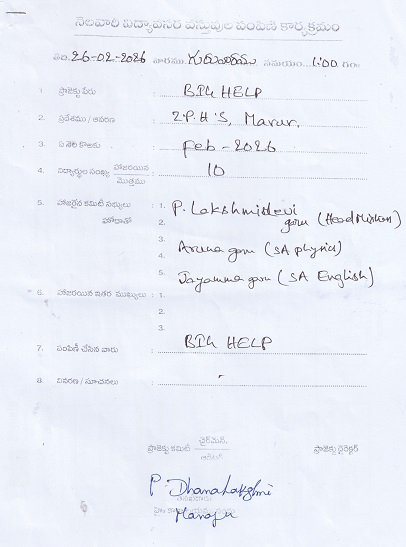 నెలవారి విద్యావసర వస్తువుల పంపిణీ కార్యక్రమం
తం. 26-02-2026 వారము గురువారము సమయం 1:00 గం.
1. ప్రాజెక్టు పేరు : BIG HELP
2. ప్రదేశము / ఆవరణ : Z.P.H'S, Marur.
3. ఏ నెల కొఱకు : Feb-2026
4. విద్యార్థుల సంఖ్య హాజరయిన / మొత్తము : 10
5. హాజరైన కమిటీ సభ్యులు : 1. P. Lakshmidevi
హోదాతో 2. garu (Head Mistress)
3. Aruna garu (SA physics)
4.
5. Jayamma garu (SA English)
6. హాజరయిన ఇతర ముఖ్యులు : 1.
2.
3.
7. పంపిణీ చేసిన వారు : BIG HELP
8. వివరణ / సూచనలు :
ప్రాజెక్టు కమిటీ చైర్మెన్ ప్రాజెక్టు డైరెక్టర్
P. Dhanalakshmi
Manager